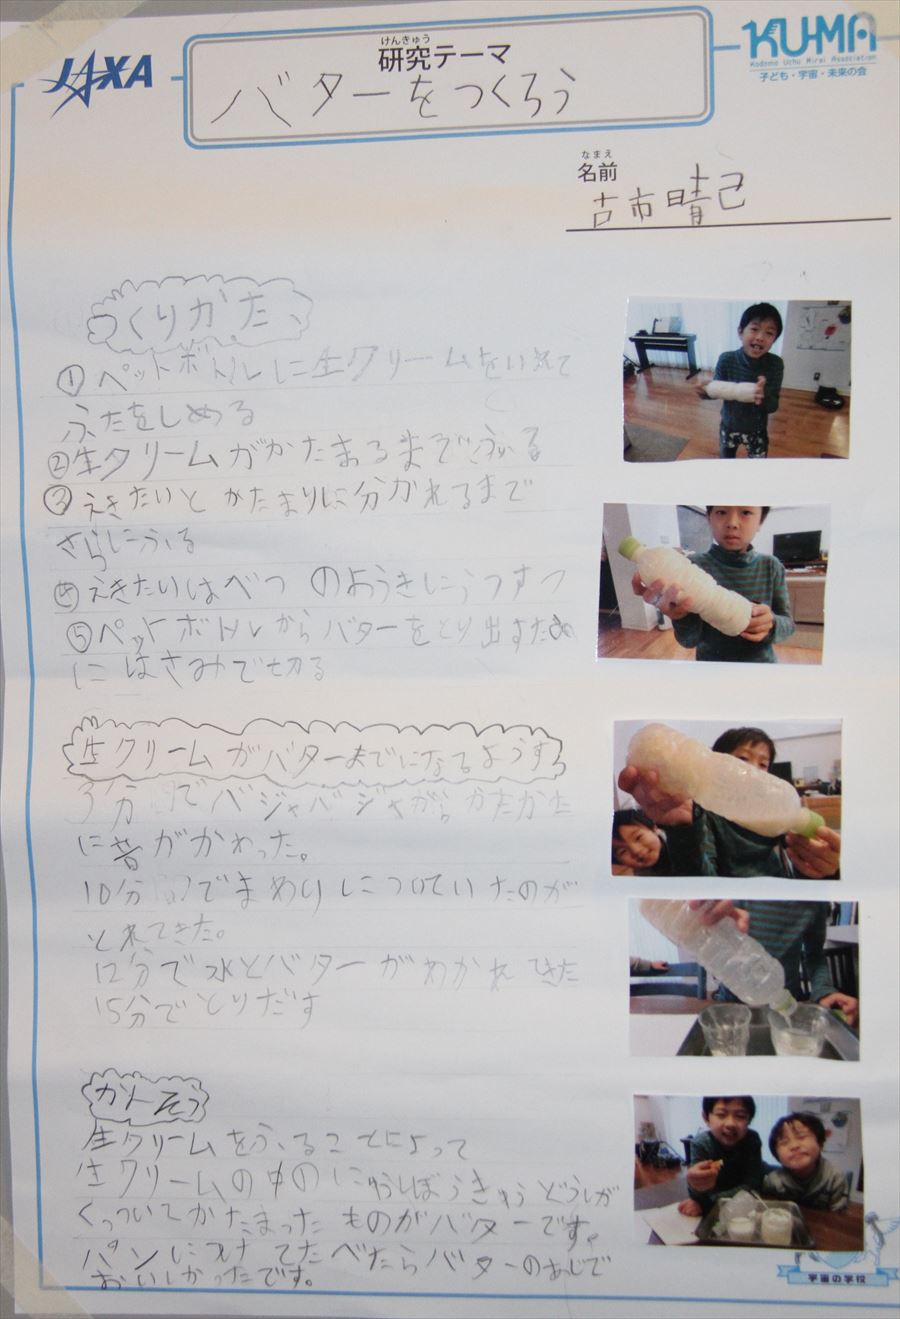 JAXA
けんきゅう
研究テーマ
バターをつくろう
KU-MA
Kodomo Uchu Mirai Association
子ども・宇宙・未来の会
なまえ
名前
古市晴己
つくりかた
①ペットボトルに生クリームをいれて
ふたをしめる
②生クリームがかたまるまでふる
③えきたいとかたまりに分かれるまで
さらにふる
④えきたいはべつのようきにうつす
⑤ペットボトルからバターをとり出すため
にはさみで切る
生クリームがバターまでになるようす
3分でバジャバジャからかたかた
に音がかわった。
10分でまわりについていたのが
とれてきた。
12分で水とバターがわかれてきた
15分でとりだす
かんそう
生クリームをふることによって
生クリームの中のにゅうしぼうきゅうどうしが
くっついてかたまったものがバターです。
パンにつけてたべたらバターのあじで
おいしかったです。
宇宙の学校